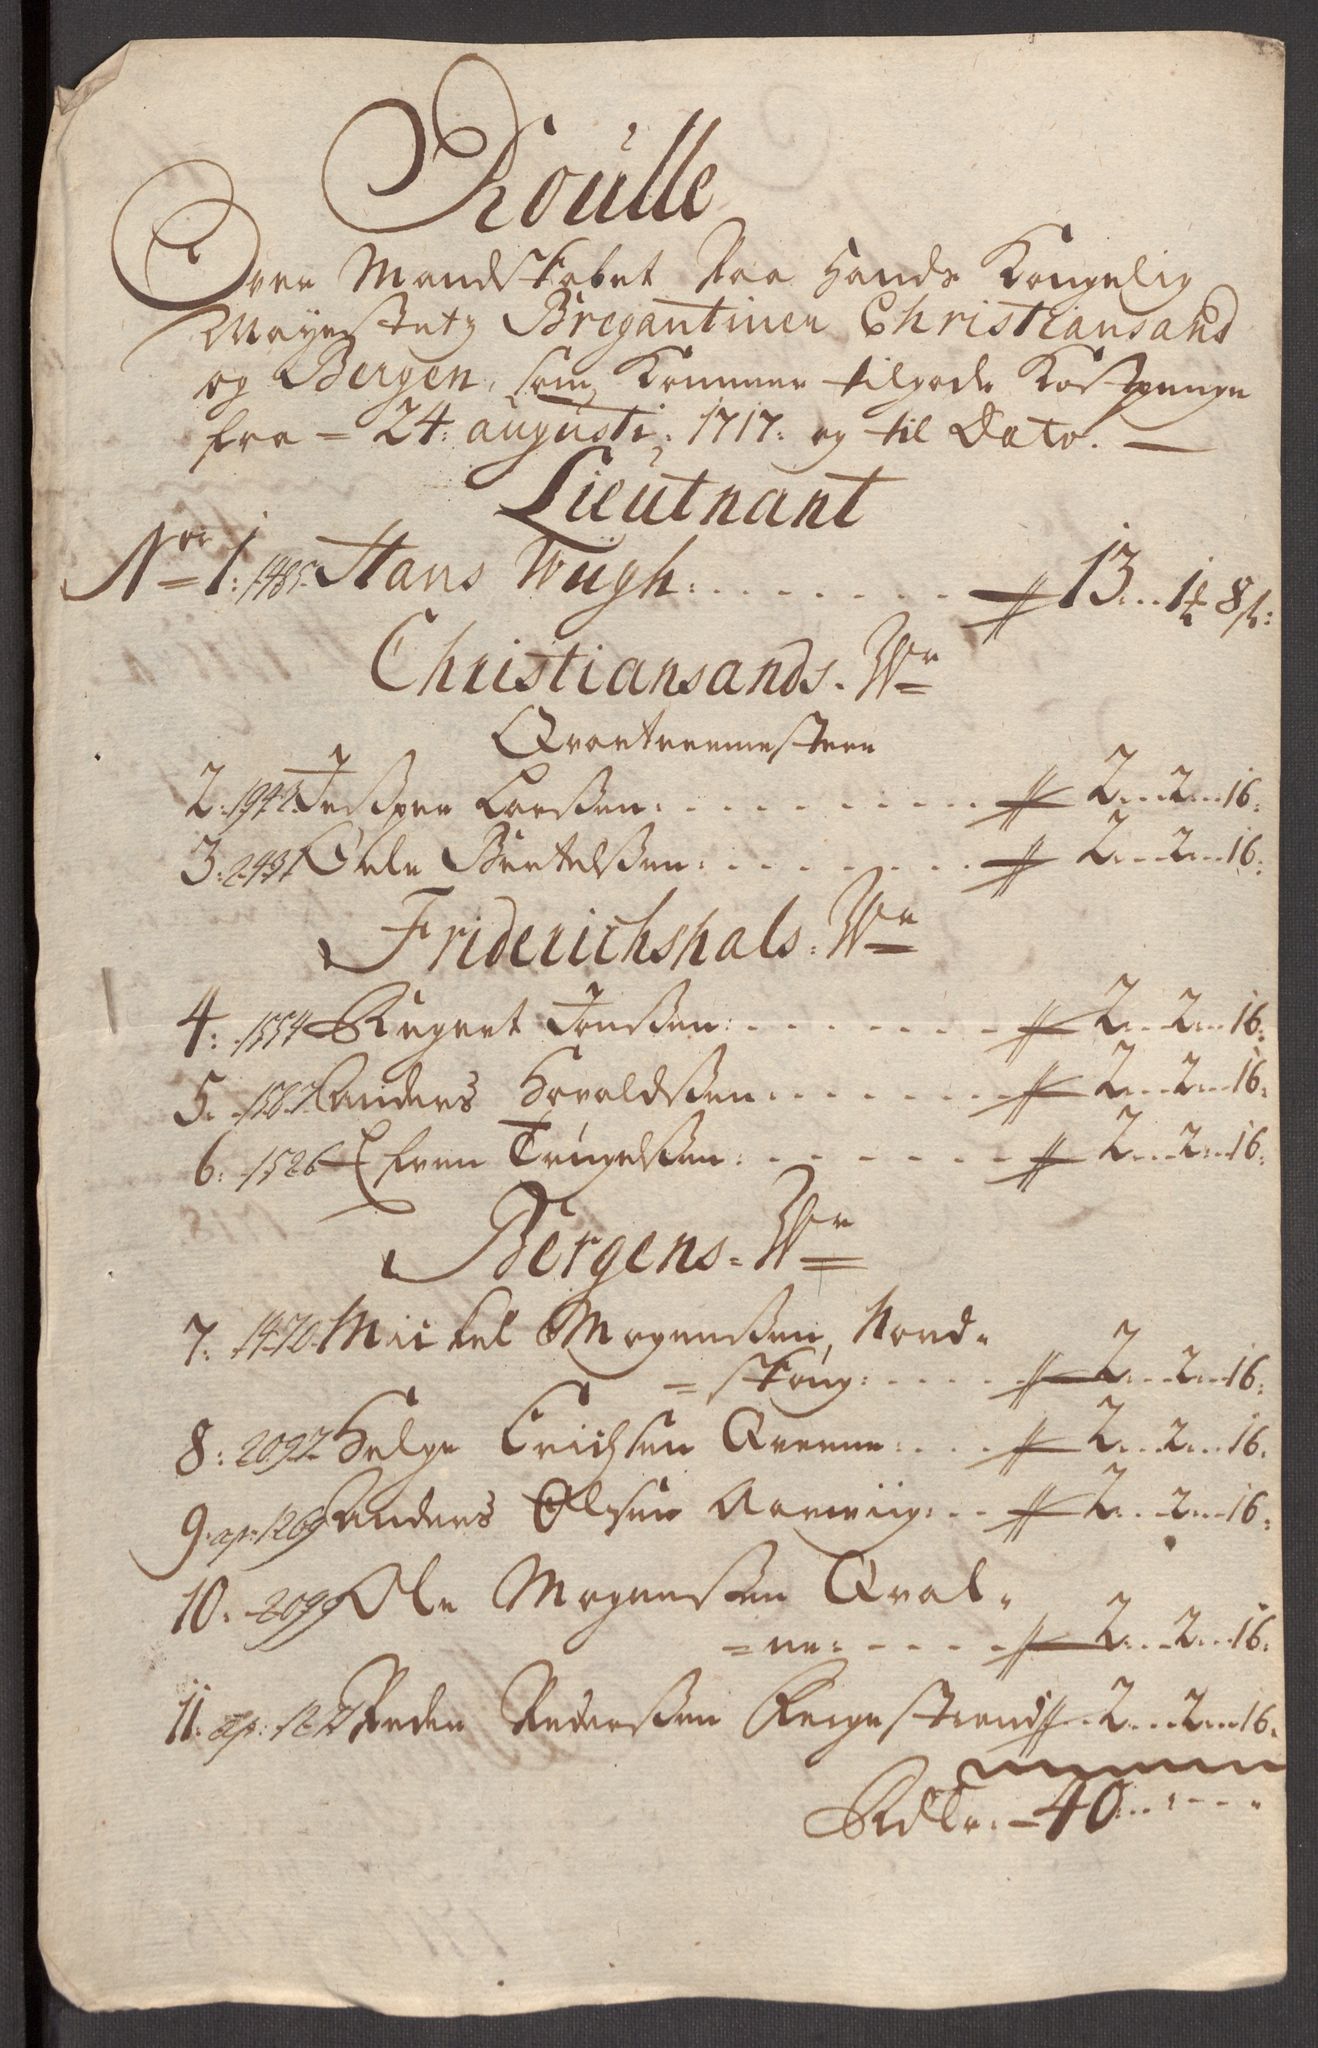 Roulle
Over Mandskabet Paa Hands Kongelig
Mayestetz Bregantinen Christiansand
og Bergen, som Kommer tilgode Kostpenge
fra - 24: augusti: 1717: og til Dato. —
Lieutnant
No 1: 1485. Hans Wiigh: . . . . . . . # 13 . . . 1 ℔ 8 ß:
Christiansands. Wr
Qvarteermestere
2. 1942 Jesper Larßen: . . . . . . . . # 2 . . . 2 . . . 16:
3: 2431 Oele Bertelßen: . . . . . . . # 2 . . . 2 . . . 16:
Friderichshals: Wr
4: 1554 Rugert Jonßen: . . . . . . . # 2 . . . 2 . . . 16:
5. 1567 anders Havoldßen: . . . . . . # 2 . . . 2 . . . 16:
6: 1526 Efven Trugelßen: . . . . . . # 2 . . . 2 . . . 16:
Bergens. Wr
7: 1470. Mickel Mogenßen, Nord-
= skoug: . . . . . # 2 . . . 2 . . . 16:
8: 2092 Helge Erichsen Qvenne: . . . # 2 . . . 2 . . . 16.
9. ap: 1269 anders Olsen Aarviig: . . # 2 . . . 2 . . . 16:
10. 2099 Ole Mogenßen Qval-
= ne: . . . . . # 2 . . . 2 . . . 16:
11. ap: Peder Pederßen # 2 . . . 2 . . . 16.
Rdlr. — 40 . . . . . .